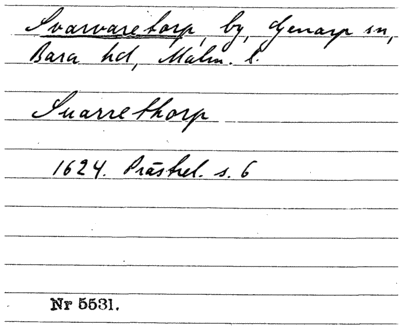 Svarvaretorp, by, Genarp sn,
Bara hd, Malm. l.
Suarrethorp
1624. Prästrel. s. 6
Nr 5531.